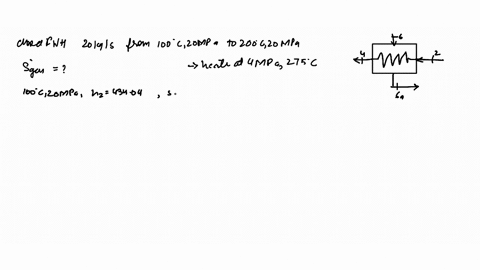 closed FWH 20kg/s from 100°C,20MPa to 200°C,20MPa
Ṡgen = ? → heate at 4MPa, 275°C
100°C,20MPa, h2=434.04 , s.
6
4
2
6a